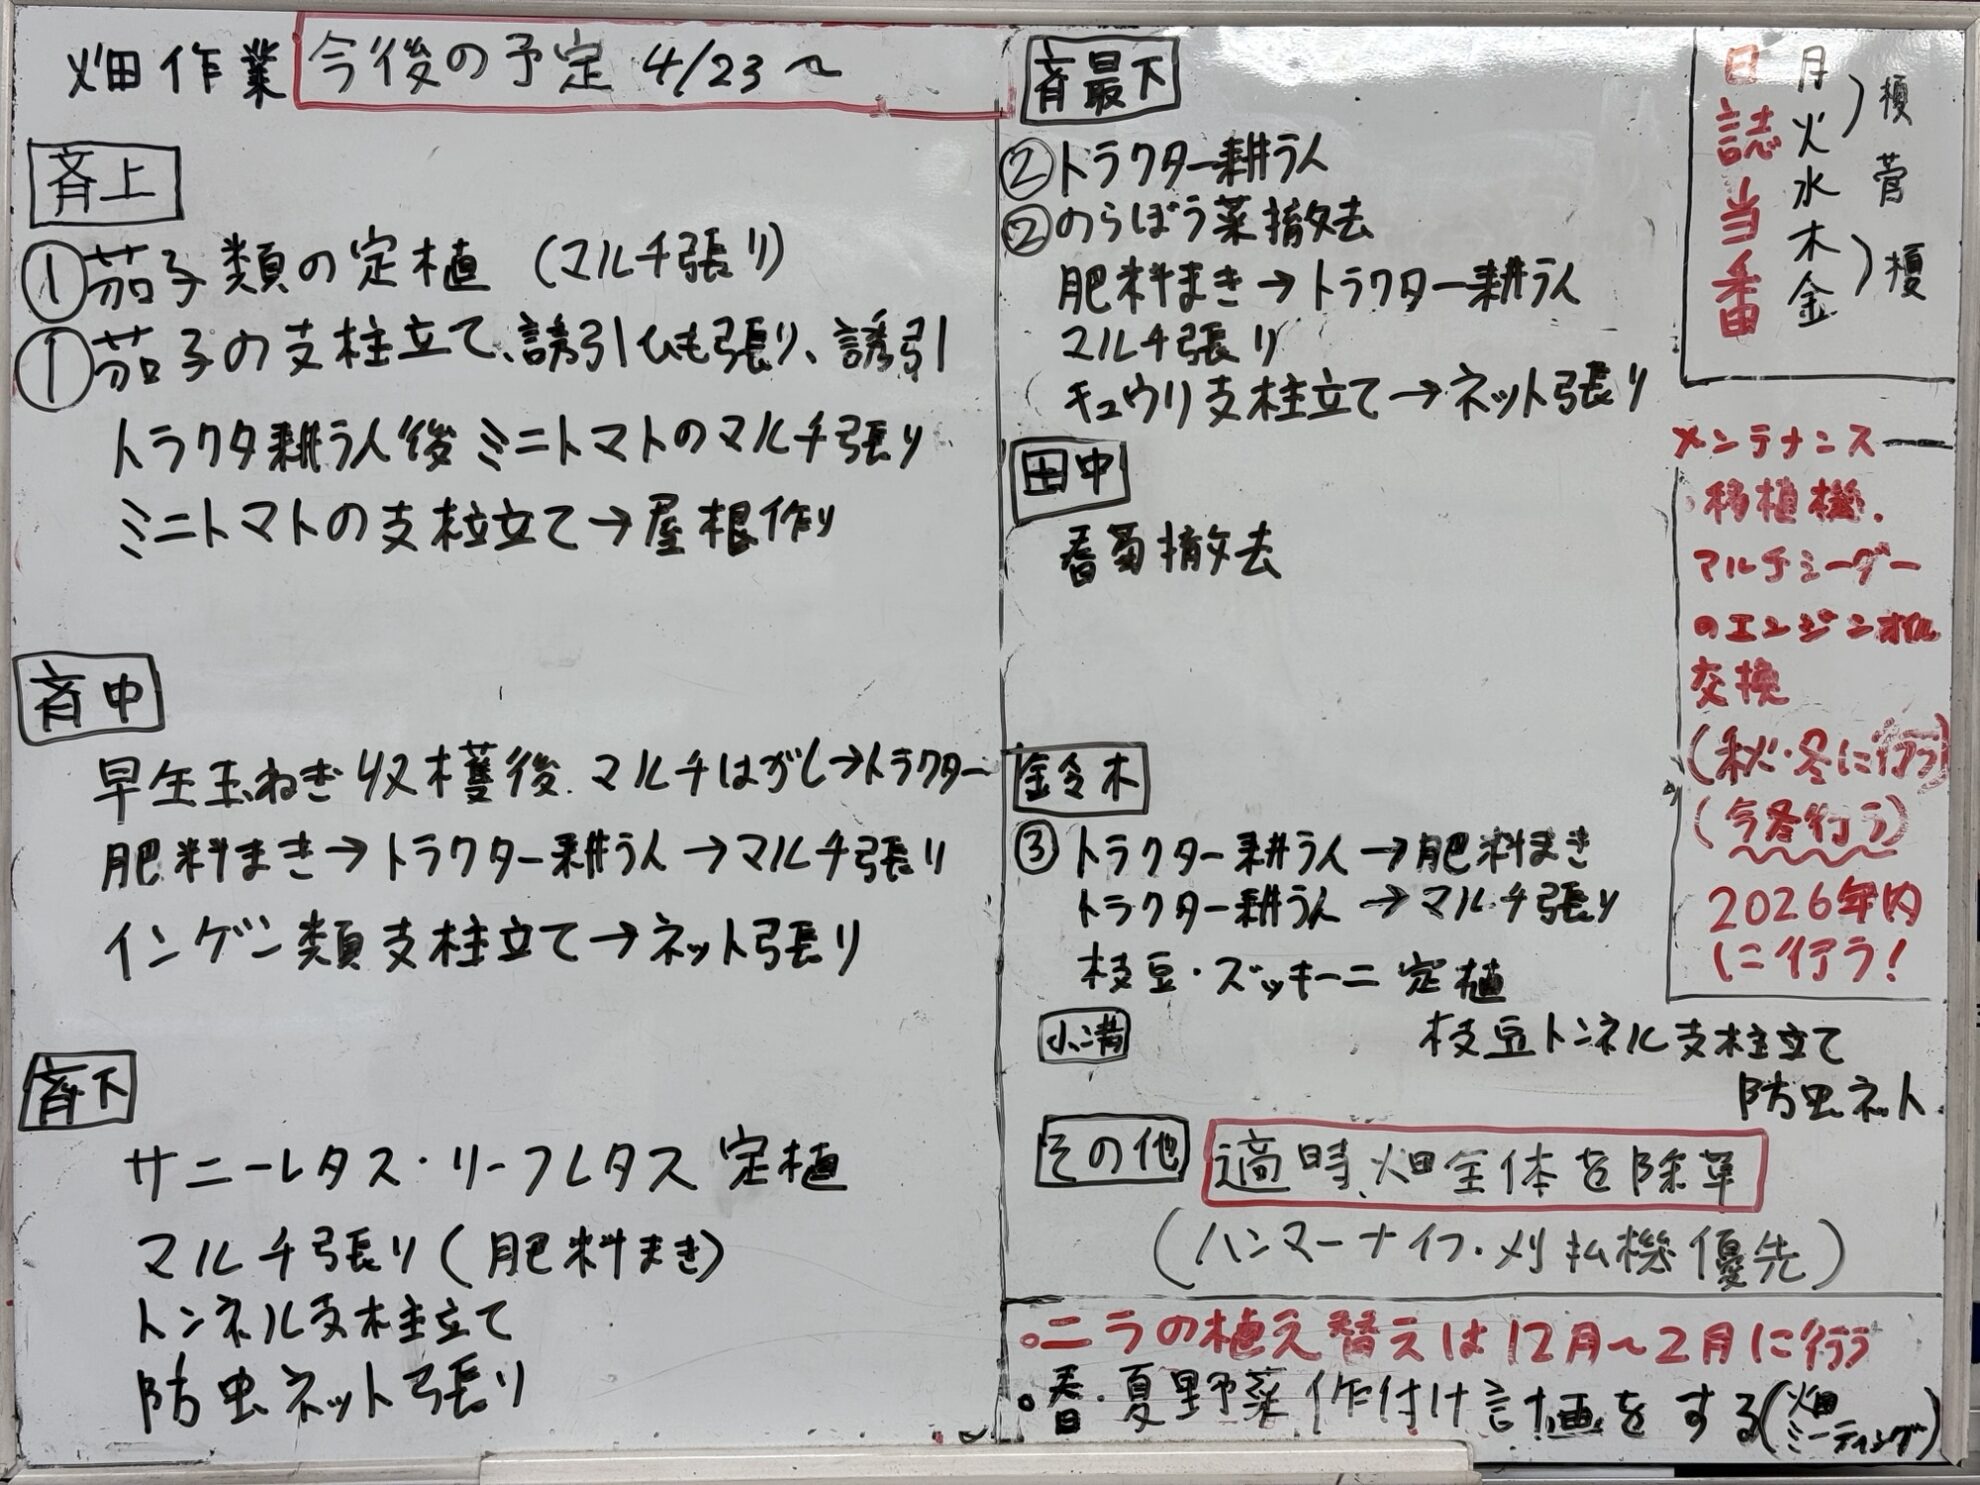 畑作業 今後の予定 4/23〜
斉上
①茄子類の定植 (マルチ張り)
①茄子の支柱立て、誘引ひも張り、誘引
トラクタ耕うん後ミニトマトのマルチ張り
ミニトマトの支柱立て→屋根作り
斉中
早生玉ねぎ収穫後、マルチはがし→トラクター
肥料まき→トラクター耕うん→マルチ張り
インゲン類支柱立て→ネット張り
斉下
サニーレタス・リーフレタス 定植
マルチ張り(肥料まき)
トンネル支柱立て
防虫ネット張り
斉最下
②トラクター耕うん
②のらぼう菜撤去
肥料まき→トラクター耕うん
マルチ張り
キュウリ支柱立て→ネット張り
田中
春菊撤去
鈴木
③トラクター耕うん→肥料まき
トラクター耕うん→マルチ張り
枝豆・ズッキーニ 定植
小溝
枝豆トンネル支柱立て
防虫ネット
その他 適時、畑全体を除草
(ハンマーナイフ・刈払機優先)
。ニラの植え替えは12月〜2月に行う
。春・夏野菜作付け計画をする(畑ミーティング)
日誌当番
月
火
)榎
水 菅
木
金
)榎
メンテナンス
・移植機、
マルチシーダー
のエンジンオイル
交換
(秋・冬に行う)
(今冬行う)
2026年内
に行う!